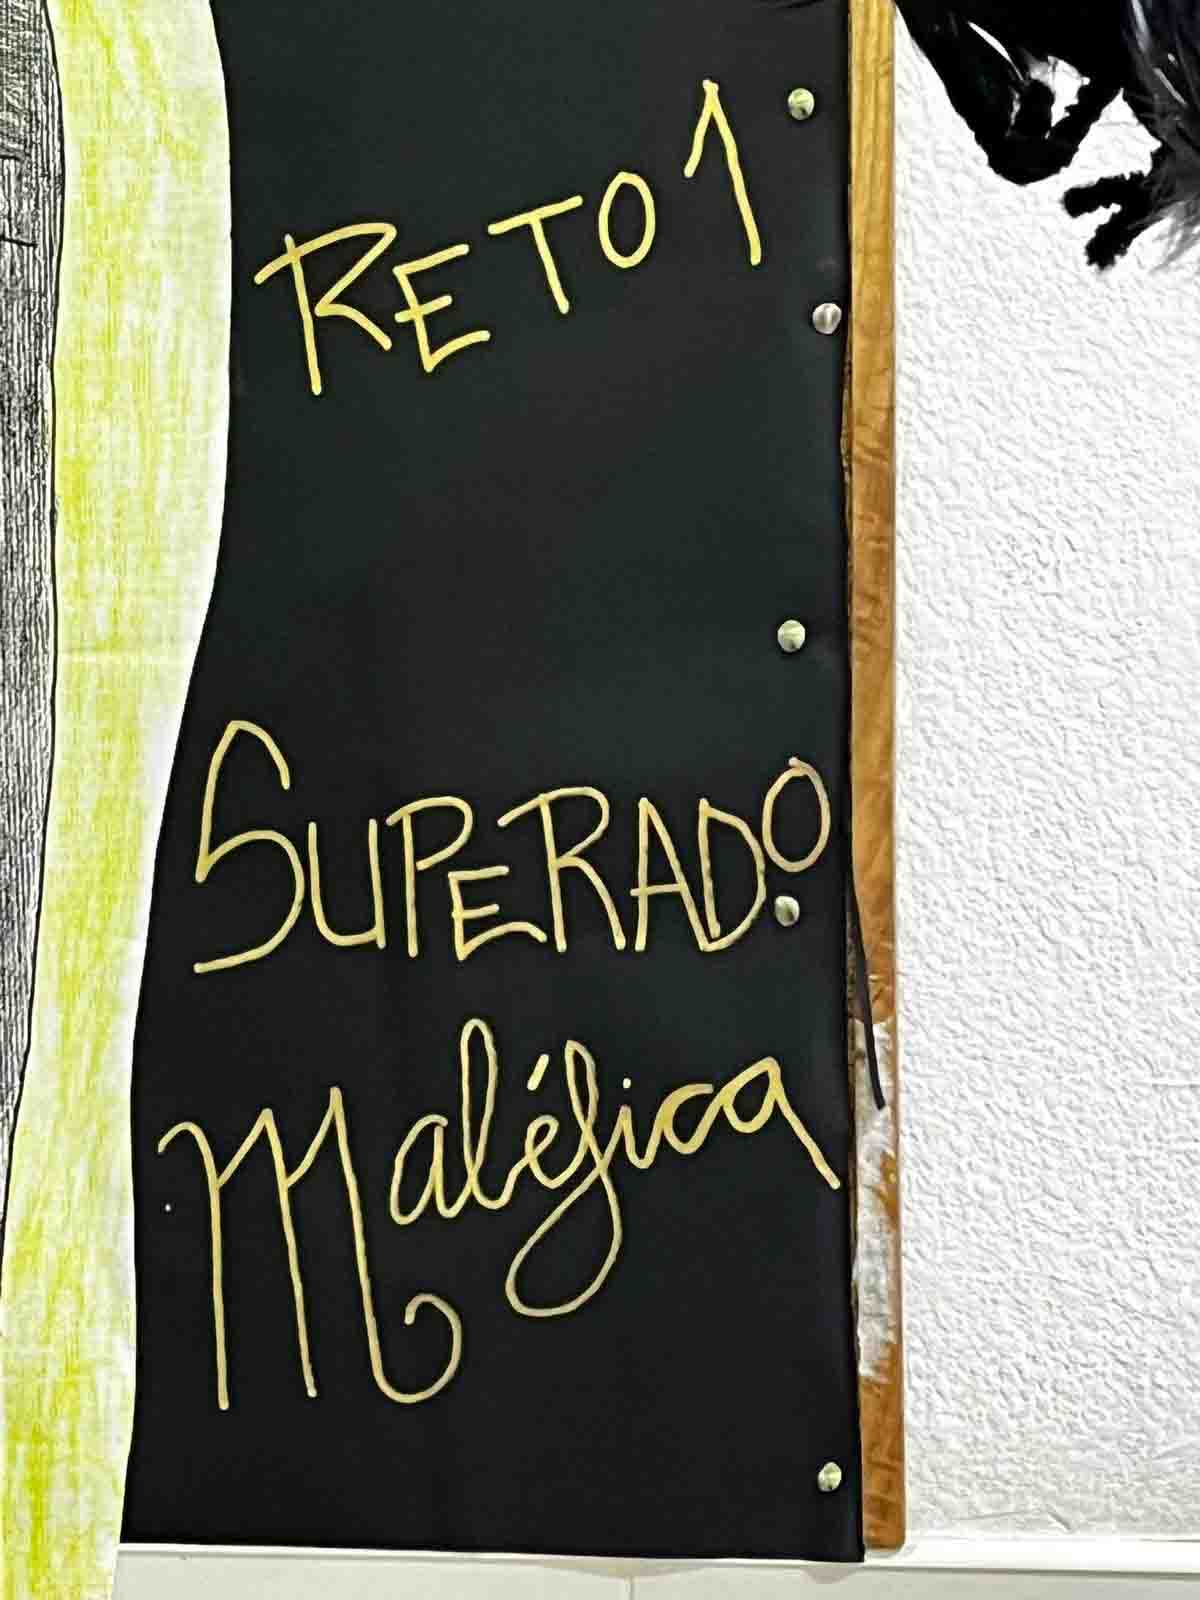 RETO 1
SUPERADO
Maléfica